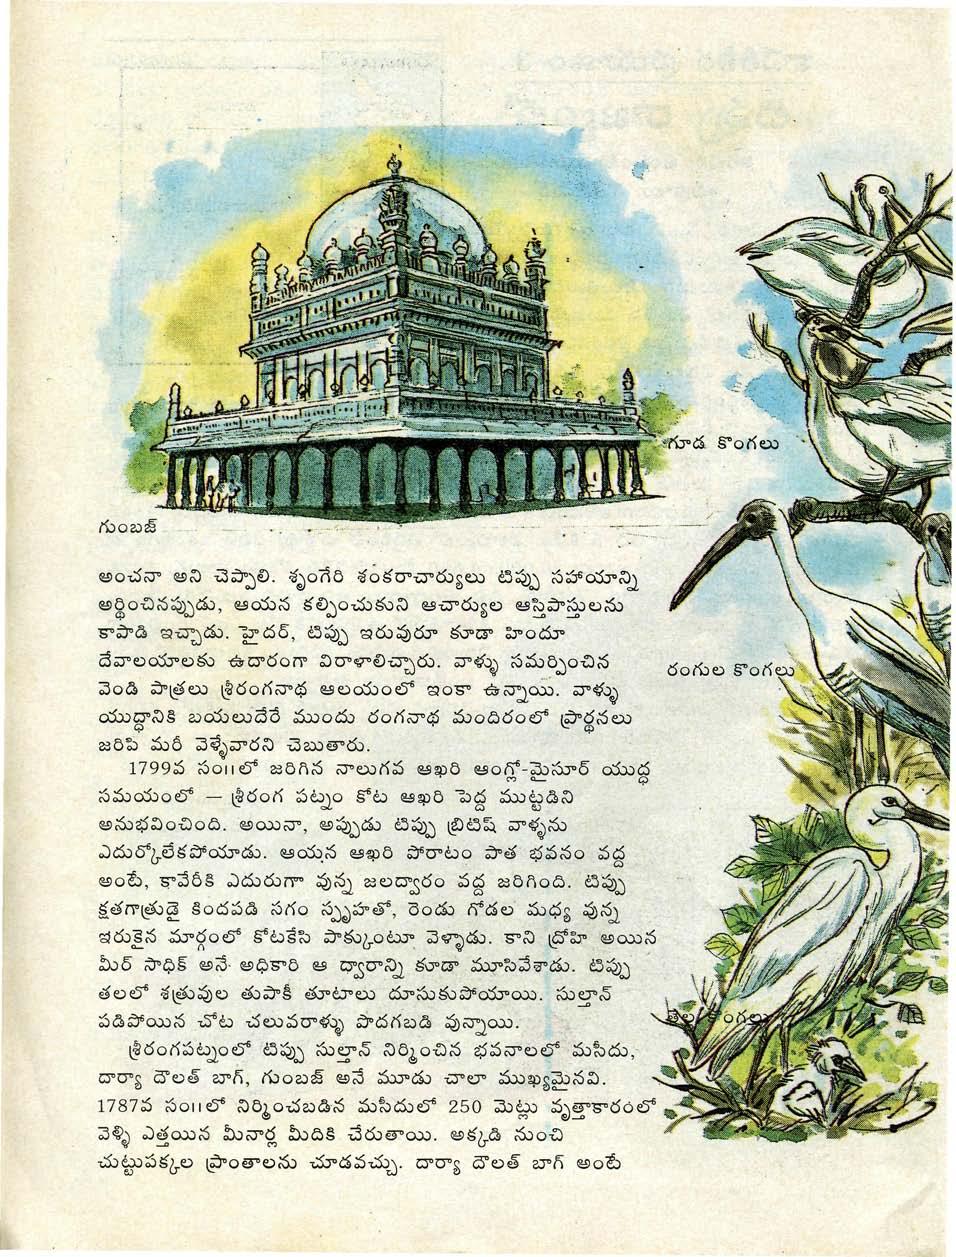 గూడ కొంగలు
గుంబజ్
అంచనా అని చెప్పాలి. శృంగేరి శంకరాచార్యులు టిప్పు సహాయాన్ని
అర్థించినప్పుడు, ఆయన కల్పించుకుని ఆచార్యుల ఆస్తిపాస్తులను
కాపాడి ఇచ్చాడు. హైదర్, టిప్పు ఇరువురూ కూడా హిందూ
దేవాలయాలకు ఉదారంగా విరాళాలిచ్చారు. వాళ్ళు సమర్పించిన
వెండి పాత్రలు శ్రీరంగనాథ ఆలయంలో ఇంకా ఉన్నాయి. వాళ్ళు
యుద్ధానికి బయలుదేరే ముందు రంగనాథ మందిరంలో ప్రార్థనలు
జరిపి మరీ వెళ్ళేవారని చెబుతారు.
రంగుల కొంగలు
1799వ సం౹౹లో జరిగిన నాలుగవ ఆఖరి ఆంగ్లో-మైసూర్ యుద్ధ
సమయంలో — శ్రీరంగ పట్నం కోట ఆఖరి పెద్ద ముట్టడిని
అనుభవించింది. అయినా, అప్పుడు టిప్పు బ్రిటిష్ వాళ్ళను
ఎదుర్కోలేకపోయాడు. ఆయన ఆఖరి పోరాటం పాత భవనం వద్ద
అంటే, కావేరీకి ఎదురుగా వున్న జలద్వారం వద్ద జరిగింది. టిప్పు
క్షతగాత్రుడై కిందపడి సగం స్పృహతో, రెండు గోడల మధ్య వున్న
ఇరుకైన మార్గంలో కోటకేసి పాక్కుంటూ వెళ్ళాడు. కాని ద్రోహి అయిన
మీర్ సాధిక్ అనే అధికారి ఆ ద్వారాన్ని కూడా మూసివేశాడు. టిప్పు
తలలో శత్రువుల తుపాకీ తూటాలు దూసుకుపోయాయి. సుల్తాన్
పడిపోయిన చోట చలువరాళ్ళు పొదగబడి వున్నాయి.
తెల్ల కొంగలు
శ్రీరంగపట్నంలో టిప్పు సుల్తాన్ నిర్మించిన భవనాలలో మసీదు,
దార్యా దౌలత్ బాగ్, గుంబజ్ అనే మూడు చాలా ముఖ్యమైనవి.
1787వ సం౹౹లో నిర్మించబడిన మసీదులో 250 మెట్లు వృత్తాకారంలో
వెళ్ళి ఎత్తయిన మీనార్ల మీదికి చేరుతాయి. అక్కడి నుంచి
చుట్టుపక్కల ప్రాంతాలను చూడవచ్చు. దార్యా దౌలత్ బాగ్ అంటే